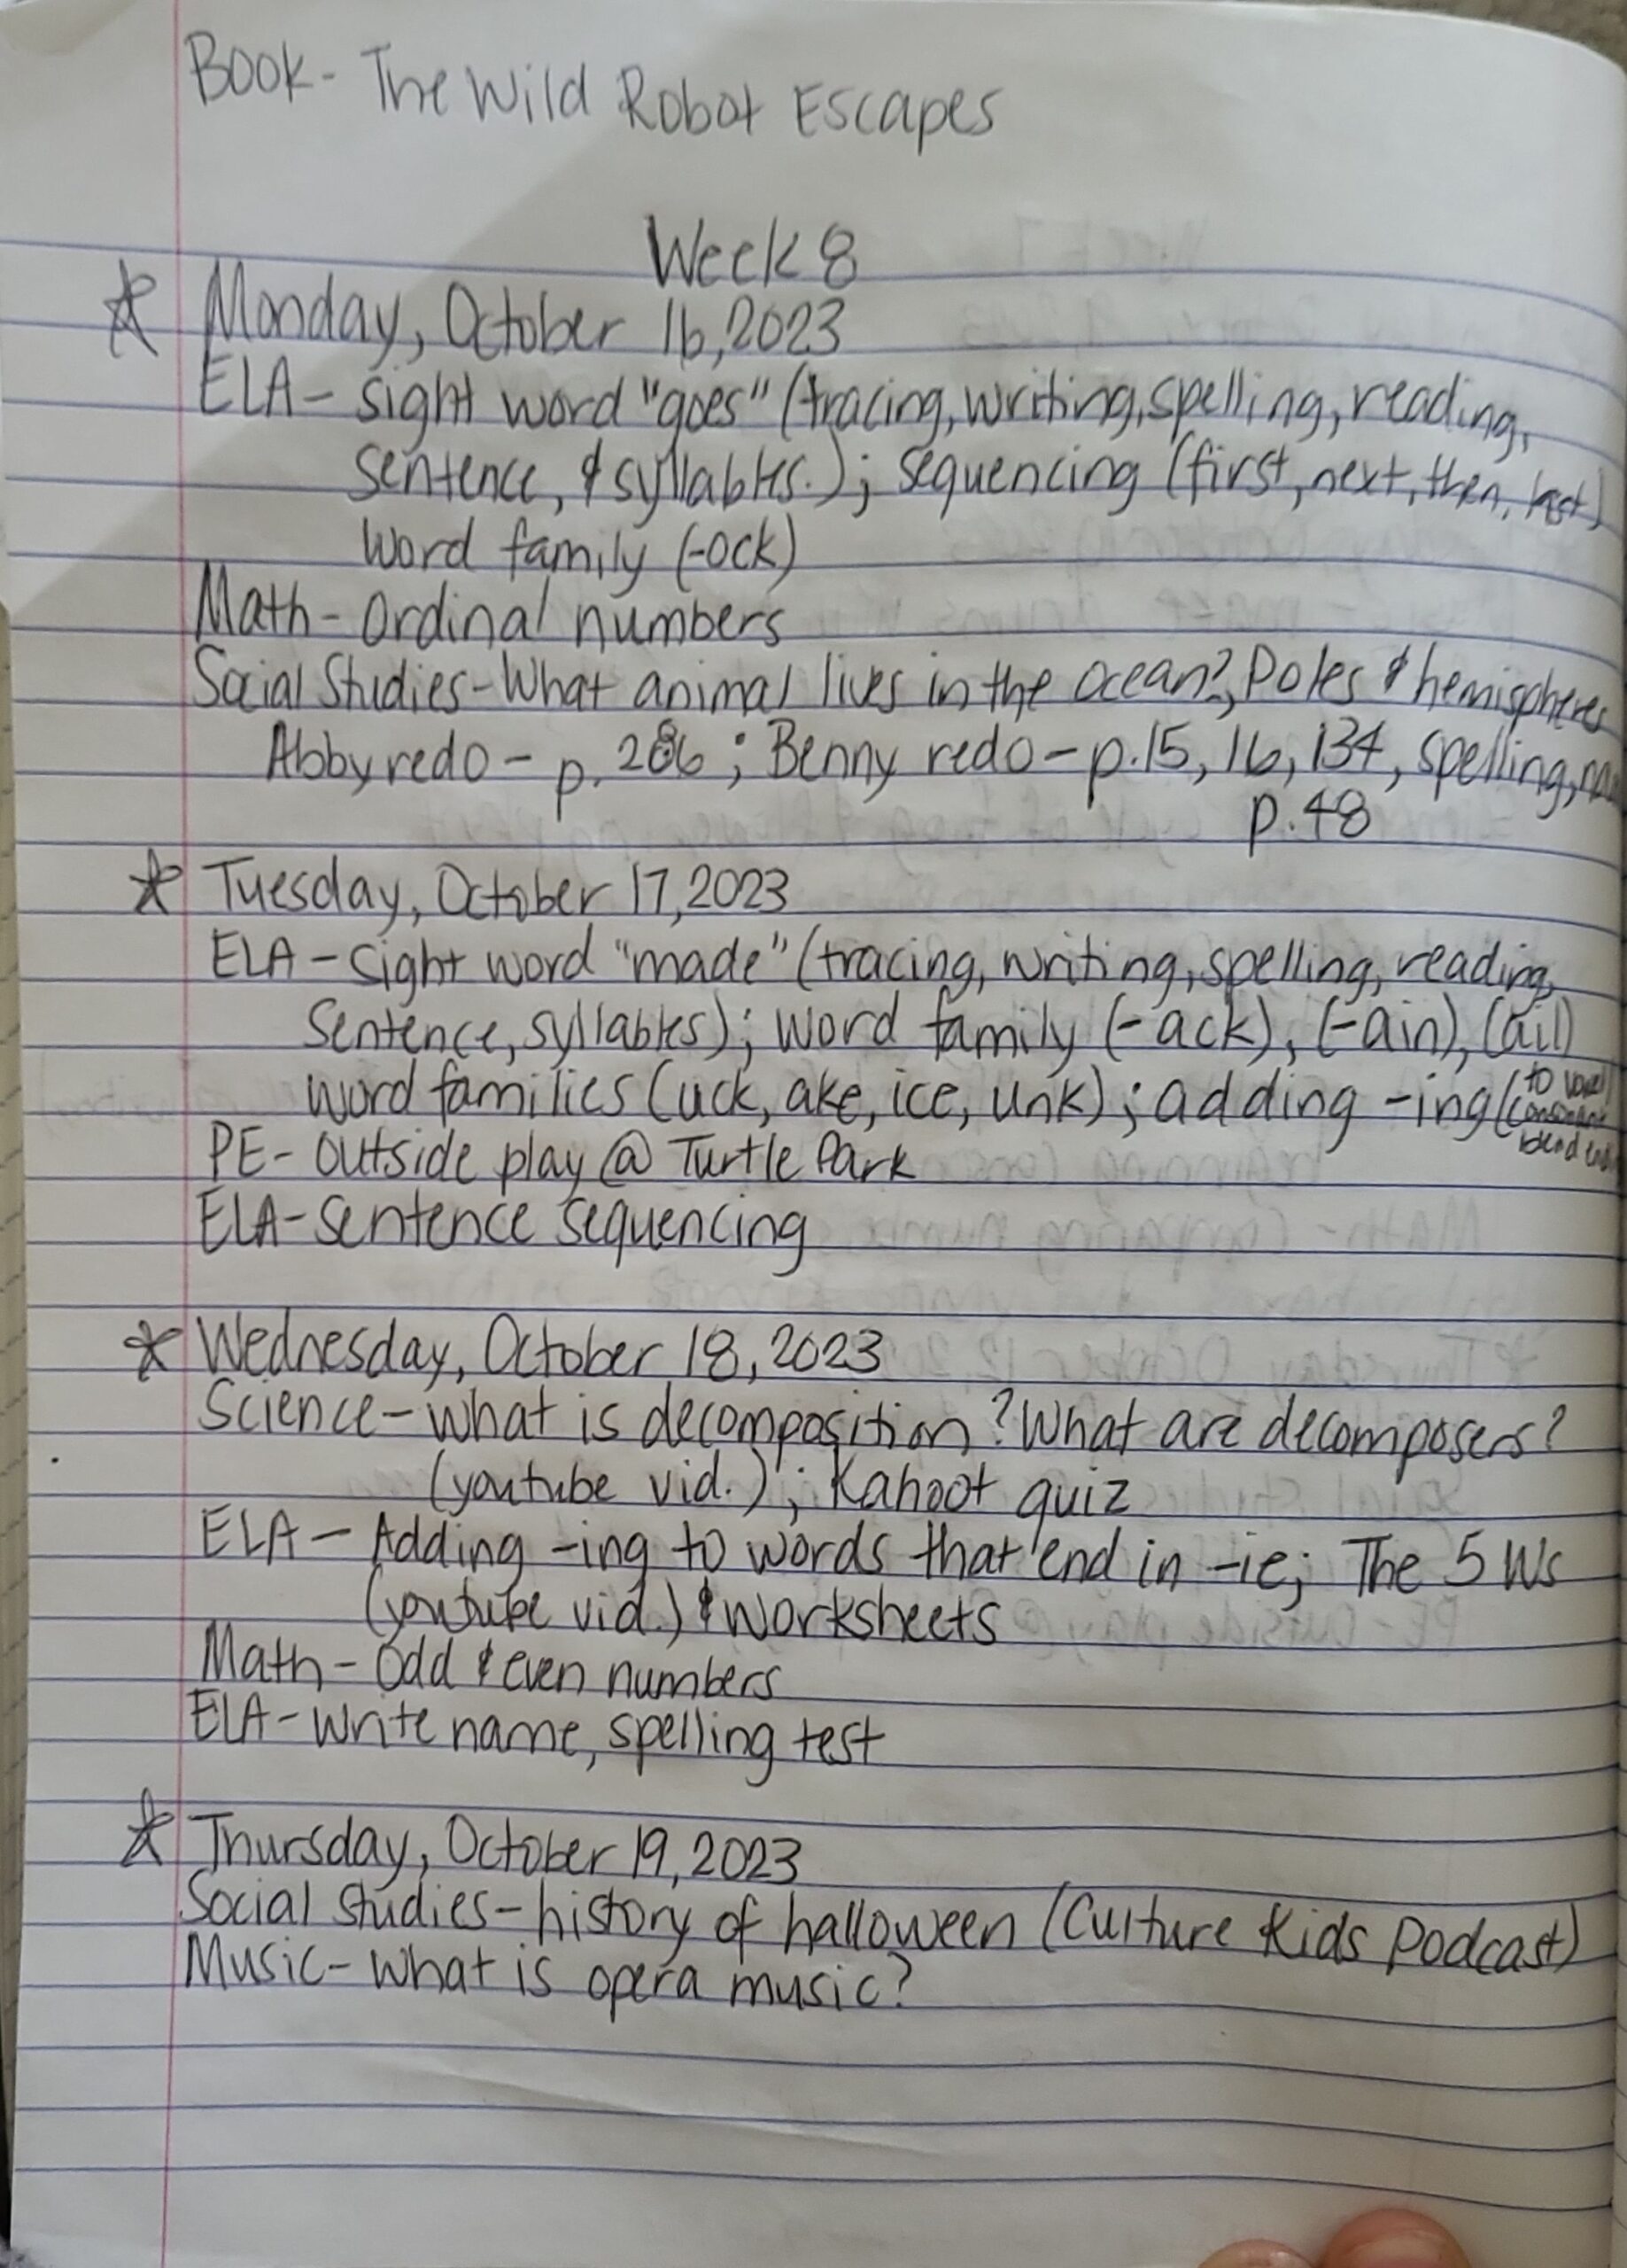 Book - The Wild Robot Escapes
Week 8
☆ Monday, October 16, 2023
ELA - sight word "goes" (tracing, writing, spelling, reading,
sentence, & syllables.); sequencing (first, next, then, last)
word family (-ock)
Math - ordinal numbers
Social Studies - What animal lives in the ocean?, Poles & hemispheres
Abby redo - p. 286 ; Benny redo - p. 15, 16, 134, spelling,
p. 48
☆ Tuesday, October 17, 2023
ELA - sight word "made" (tracing, writing, spelling, reading,
sentence, syllables); word family (-ack), (-ain), (ail)
word families (uck, ake, ice, unk); adding -ing (to vowel
consonant
blend
PE - outside play @ Turtle Park
ELA - sentence sequencing
☆ Wednesday, October 18, 2023
Science - what is decomposition? What are decomposers?
(youtube vid.); Kahoot quiz
ELA - Adding -ing to words that end in -ie; The 5 Ws
(youtube vid.) & worksheets
Math - odd & even numbers
ELA - write name, spelling test
☆ Thursday, October 19, 2023
Social studies - history of halloween (Culture Kids Podcast)
Music - what is opera music?